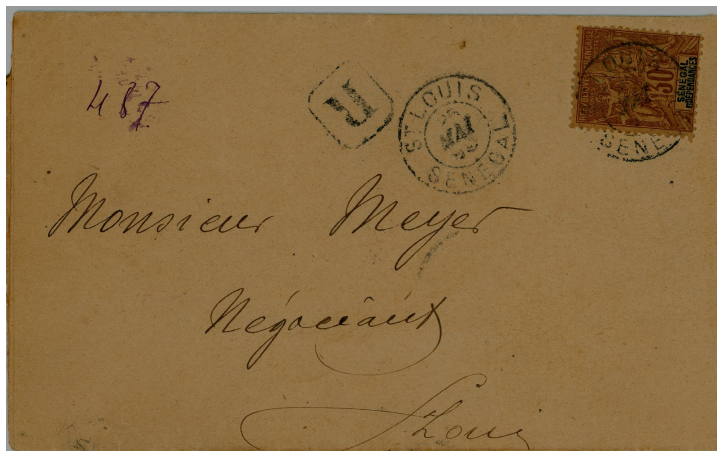 487
R
ST LOUIS
MAI
SENEGAL
SÉNÉGAL
ET DÉPENDANCES
30
SENE
Monsieur Meyer
Négociant
St Louis